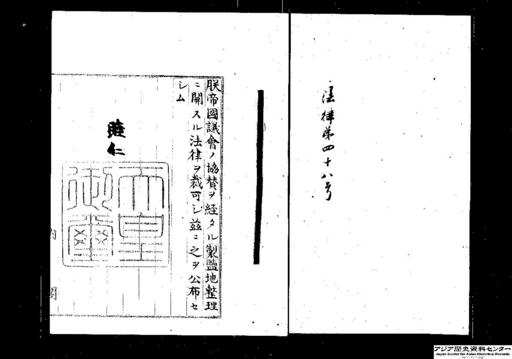 法律第四十八号
朕帝國議會ノ協賛ヲ経タル製塩地整理
ニ関スル法律ヲ裁可シ茲ニ之ヲ公布セ
シム
睦仁
天皇
御璽
内 閣
アジア歴史資料センター
Japan Center for Asian Historical Records